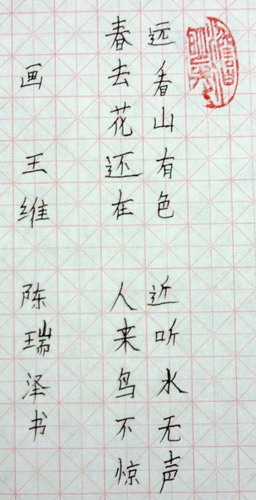 远看山有色 近听水无声
春去花还在 人来鸟不惊
画 王维 陈瑞泽书